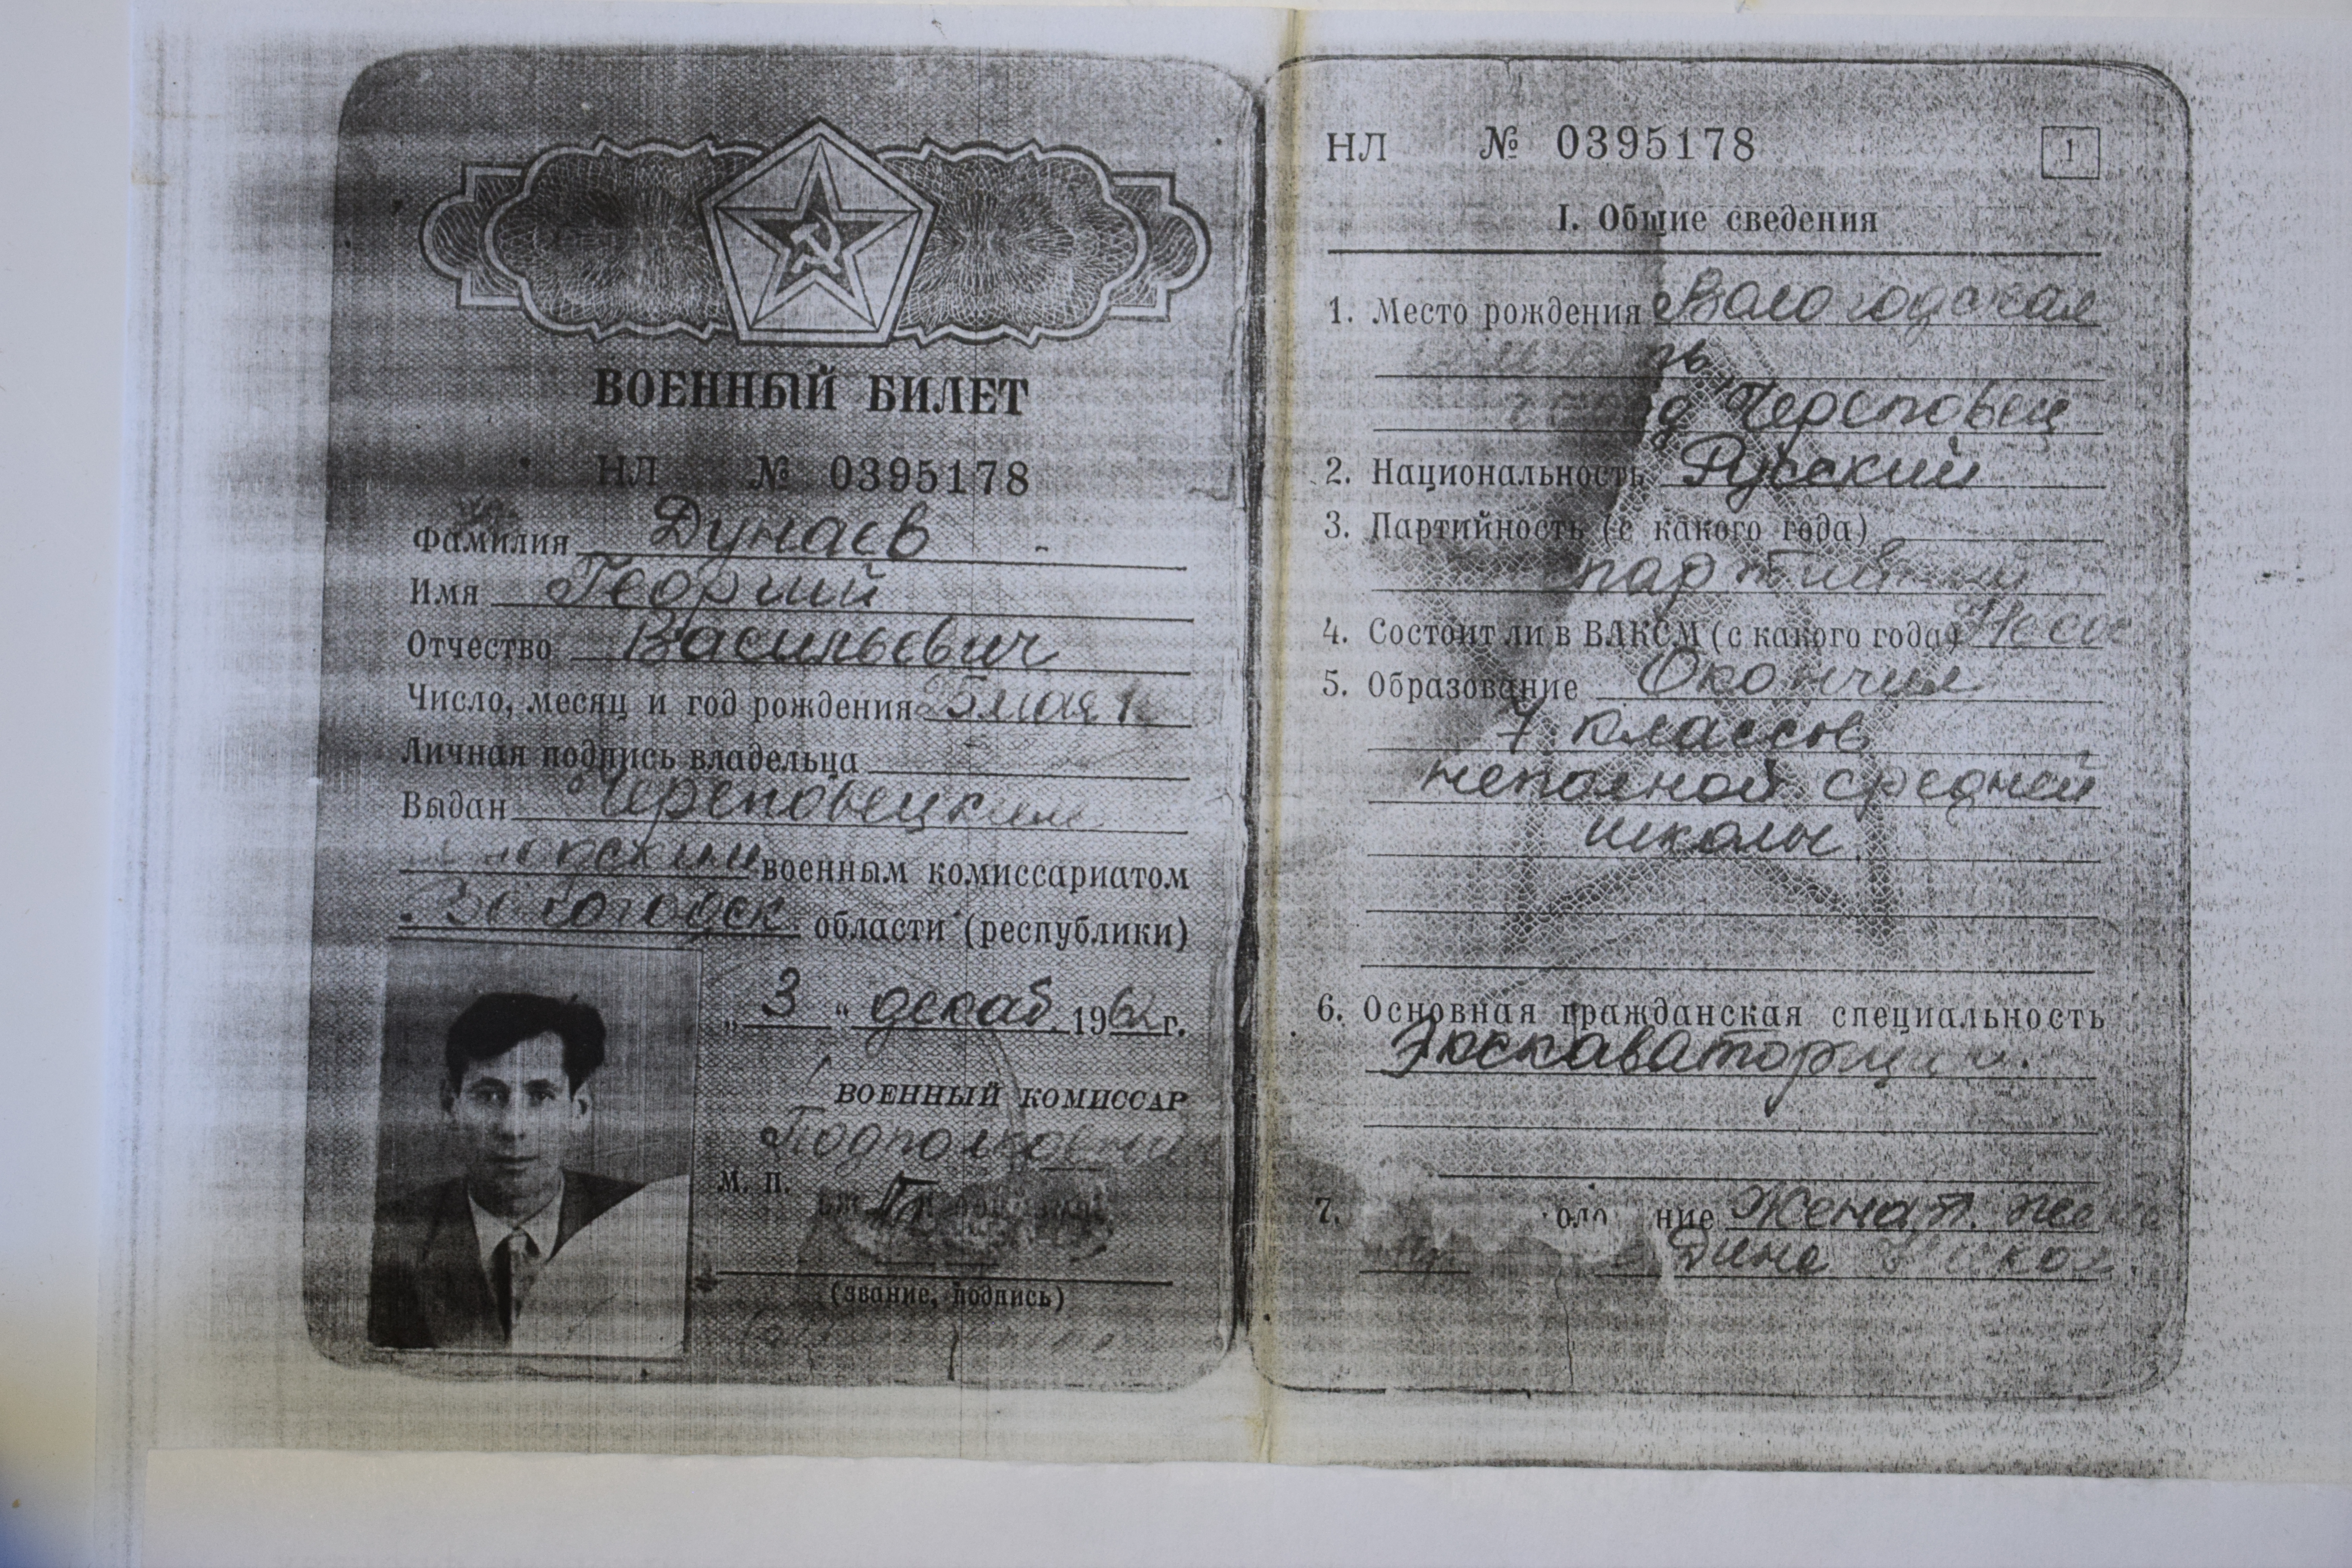 ВОЕННЫЙ БИЛЕТ
НЛ № 0395178
Фамилия Дунаев
Имя Георгий
Отчество Васильевич
Число, месяц и год рождения мая
Личная подпись владельца
Выдан Череповецким
военным комиссариатом
Вологодск. области (республики)
„3“ декаб 1962 г.
ВОЕННЫЙ КОМИССАР
Подполковник
М. П.
(звание, подпись)
НЛ № 0395178
1
I. Общие сведения
1. Место рождения Вологодская
Череповец
2. Национальность Русский
3. Партийность (с какого года)
4. Состоит ли в ВЛКСМ (с какого года)
5. Образование Окончил
7 классов
неполной средней
школы
6. Основная гражданская специальность
7. Женат.